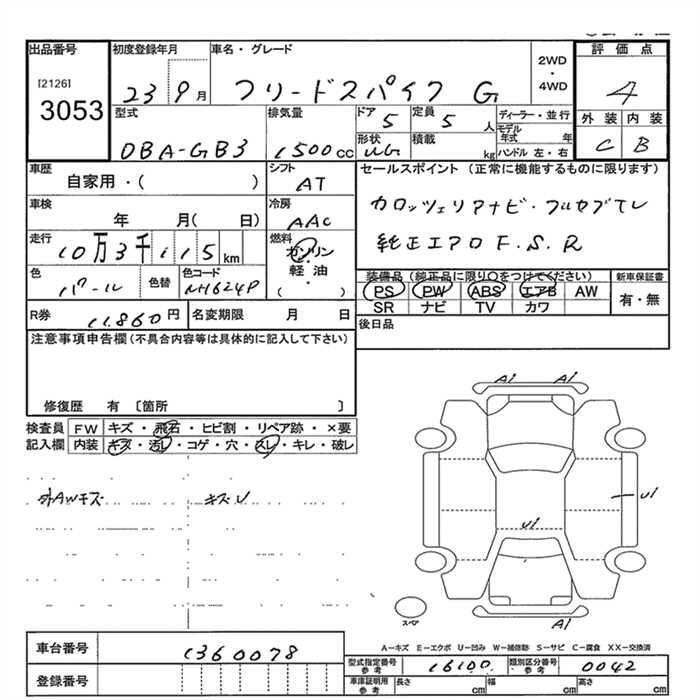 出品番号 初度登録年月 車名・グレード 2WD ・ 4WD 評価点
[2126] 3053 23 9月 フリードスパイク G 4
型式 排気量 ドア 定員 ディーラー・並行 外装 内装
DBA-GB3 1500cc 5 5人 モデル年式 年 C B
形状 積載 kg ハンドル 左・右
UG
車歴 シフト セールスポイント (正常に機能するものに限ります)
自家用・( ) AT
車検 冷房 カロッツェリアナビ・フルセグTV
年 月( 日) AAC
走行 燃料 純正エアロ F.S.R
10万3千115km ガソリン 軽油 ・ ( )
色 色替 色コード 装備品(純正品に限り○をつけてください) 新車保証書
パール NH624P PS PW ABS エアB AW 有・無
SR ナビ TV カワ
R券 11,860円 名変期限 月 日 後日品
注意事項申告欄(不具合内容等は具体的に記入して下さい)
修復歴 有 〔箇所 〕
検査員 FW キズ・飛石・ヒビ割・リペア跡・×要
記入欄 内装 キズ・汚レ・コゲ・穴・スレ・キレ・破レ
外AWキズ キズU
A1 A1
U1
U1
スペア A1
A-キズ E-エクボ U-凹み W-補修跡 S-サビ C-腐食 XX-交換済
車台番号 1360078 型式指定番号 参考 16100 類別区分番号 参考 0042
登録番号 車庫証明用 参考 長さ cm 幅 cm 高さ cm